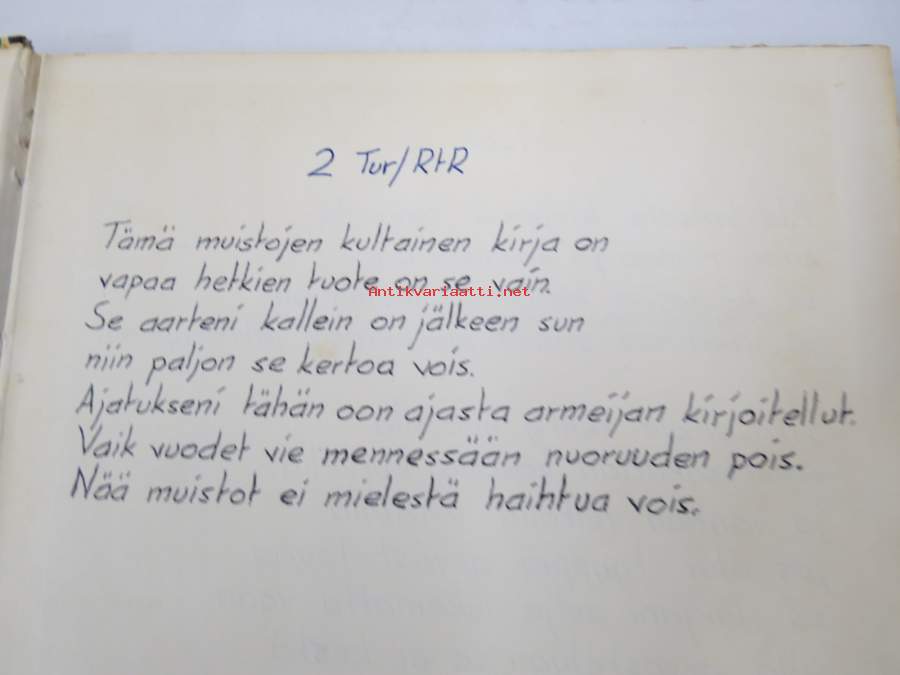 2 Tur/RtR
Tämä muistojen kultainen kirja on
vapaa hetkien tuote on se vain.
Antikvariaatti.net
Se aarteni kallein on jälkeen sun
niin paljon se kertoa vois.
Ajatukseni tähän oon ajasta armeijan kirjoitellut.
Vaik vuodet vie mennessään nuoruuden pois.
Nää muistot ei mielestä haihtua vois.